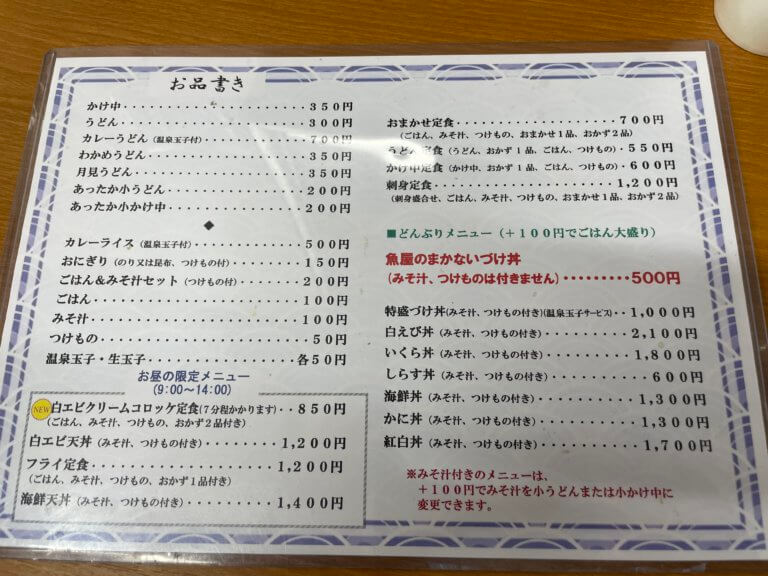 お品書き
かけ中・・・・・・・・・・・・・・・・・・・・350円
うどん・・・・・・・・・・・・・・・・・・・・300円
カレーうどん(温泉玉子付)・・・・・・・・・・・700円
わかめうどん・・・・・・・・・・・・・・・・・350円
月見うどん・・・・・・・・・・・・・・・・・・350円
あったか小うどん・・・・・・・・・・・・・・・200円
あったか小かけ中・・・・・・・・・・・・・・・200円
◆
カレーライス(温泉玉子付)・・・・・・・・・・・500円
おにぎり(のり又は昆布、つけもの付)・・・・・・150円
ごはん&みそ汁セット(つけもの付)・・・・・・・200円
ごはん・・・・・・・・・・・・・・・・・・・・100円
みそ汁・・・・・・・・・・・・・・・・・・・・100円
つけもの・・・・・・・・・・・・・・・・・・・50円
温泉玉子・生玉子・・・・・・・・・・・・・・各50円
お昼の限定メニュー
(9:00〜14:00)
NEW 白エビクリームコロッケ定食(7分程かかります)・・850円
(ごはん、みそ汁、つけもの、おかず2品付き)
白エビ天丼(みそ汁、つけもの付き)・・・・・・・1,200円
フライ定食・・・・・・・・・・・・・・・・・・1,200円
(ごはん、みそ汁、つけもの、おかず1品付き)
海鮮天丼(みそ汁、つけもの付き)・・・・・・・・1,400円
おまかせ定食・・・・・・・・・・・・・・・・・700円
(ごはん、みそ汁、つけもの、おまかせ1品、おかず2品)
うどん定食(うどん、おかず1品、ごはん、つけもの)・・550円
かけ中定食(かけ中、おかず1品、ごはん、つけもの)・・600円
刺身定食・・・・・・・・・・・・・・・・・・・1,200円
(刺身盛合せ、ごはん、みそ汁、つけもの、おまかせ1品、おかず2品)
■どんぶりメニュー(+100円でごはん大盛り)
魚屋のまかないづけ丼
(みそ汁、つけものは付きません)・・・・・・・・・500円
特盛づけ丼(みそ汁、つけもの付き)(温泉玉子サービス)・・1,000円
白えび丼(みそ汁、つけもの付き)・・・・・・・・2,100円
いくら丼(みそ汁、つけもの付き)・・・・・・・・1,800円
しらす丼(みそ汁、つけもの付き)・・・・・・・・600円
海鮮丼(みそ汁、つけもの付き)・・・・・・・・・1,300円
かに丼(みそ汁、つけもの付き)・・・・・・・・・1,300円
紅白丼(みそ汁、つけもの付き)・・・・・・・・・1,700円
※みそ汁付きのメニューは、
+100円でみそ汁を小うどんまたは小かけ中に
変更できます。